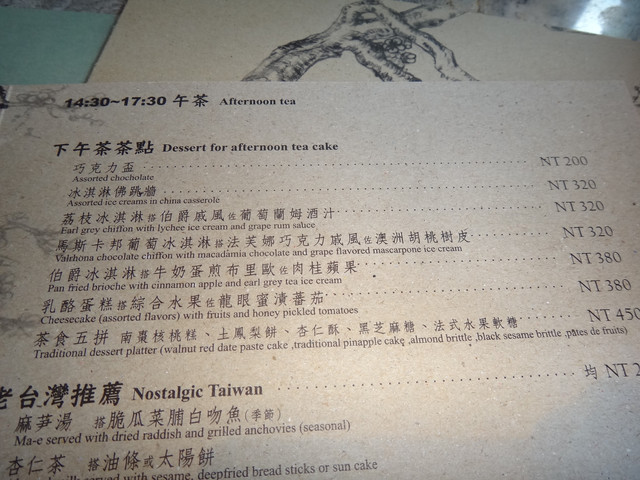 14:30~17:30 午茶 Afternoon tea
下午茶茶點 Dessert for afternoon tea cake
巧克力盃 NT 200
Assorted chocholate
冰淇淋佛跳牆 NT 320
Assorted ice creams in china casserole
荔枝冰淇淋搭伯爵戚風佐葡萄蘭姆酒汁 NT 320
Earl grey chiffon with lychee ice cream and grape rum sauce
馬斯卡邦葡萄冰淇淋搭法芙娜巧克力戚風佐澳洲胡桃樹皮 NT 320
Valrhona chocolate chiffon with macadamia chocolate and grape flavored mascarpone ice cream
伯爵冰淇淋搭牛奶蛋煎布里歐佐肉桂蘋果 NT 380
Pan fried brioche with cinnamon apple and earl grey tea ice cream
乳酪蛋糕搭綜合水果佐龍眼蜜漬蕃茄 NT 380
Cheesecake (assorted flavors) with fruits and honey pickled tomatoes
茶食五拼 南棗核桃糕、土鳳梨餅、杏仁酥、黑芝麻糖、法式水果軟糖 NT 450
Traditional dessert platter (walnut red date paste cake ,traditional pinapple cake ,almond brittle ,black sesame brittle ,pates de fruits)
老台灣推薦 Nostalgic Taiwan 均 NT 2
麻芛湯 搭脆瓜菜脯白吻魚(季節)
Ma-e served with dried raddish and grilled anchovies (seasonal)
杏仁茶 搭油條或太陽餅
served with sesame, deepfried bread sticks or sun cake